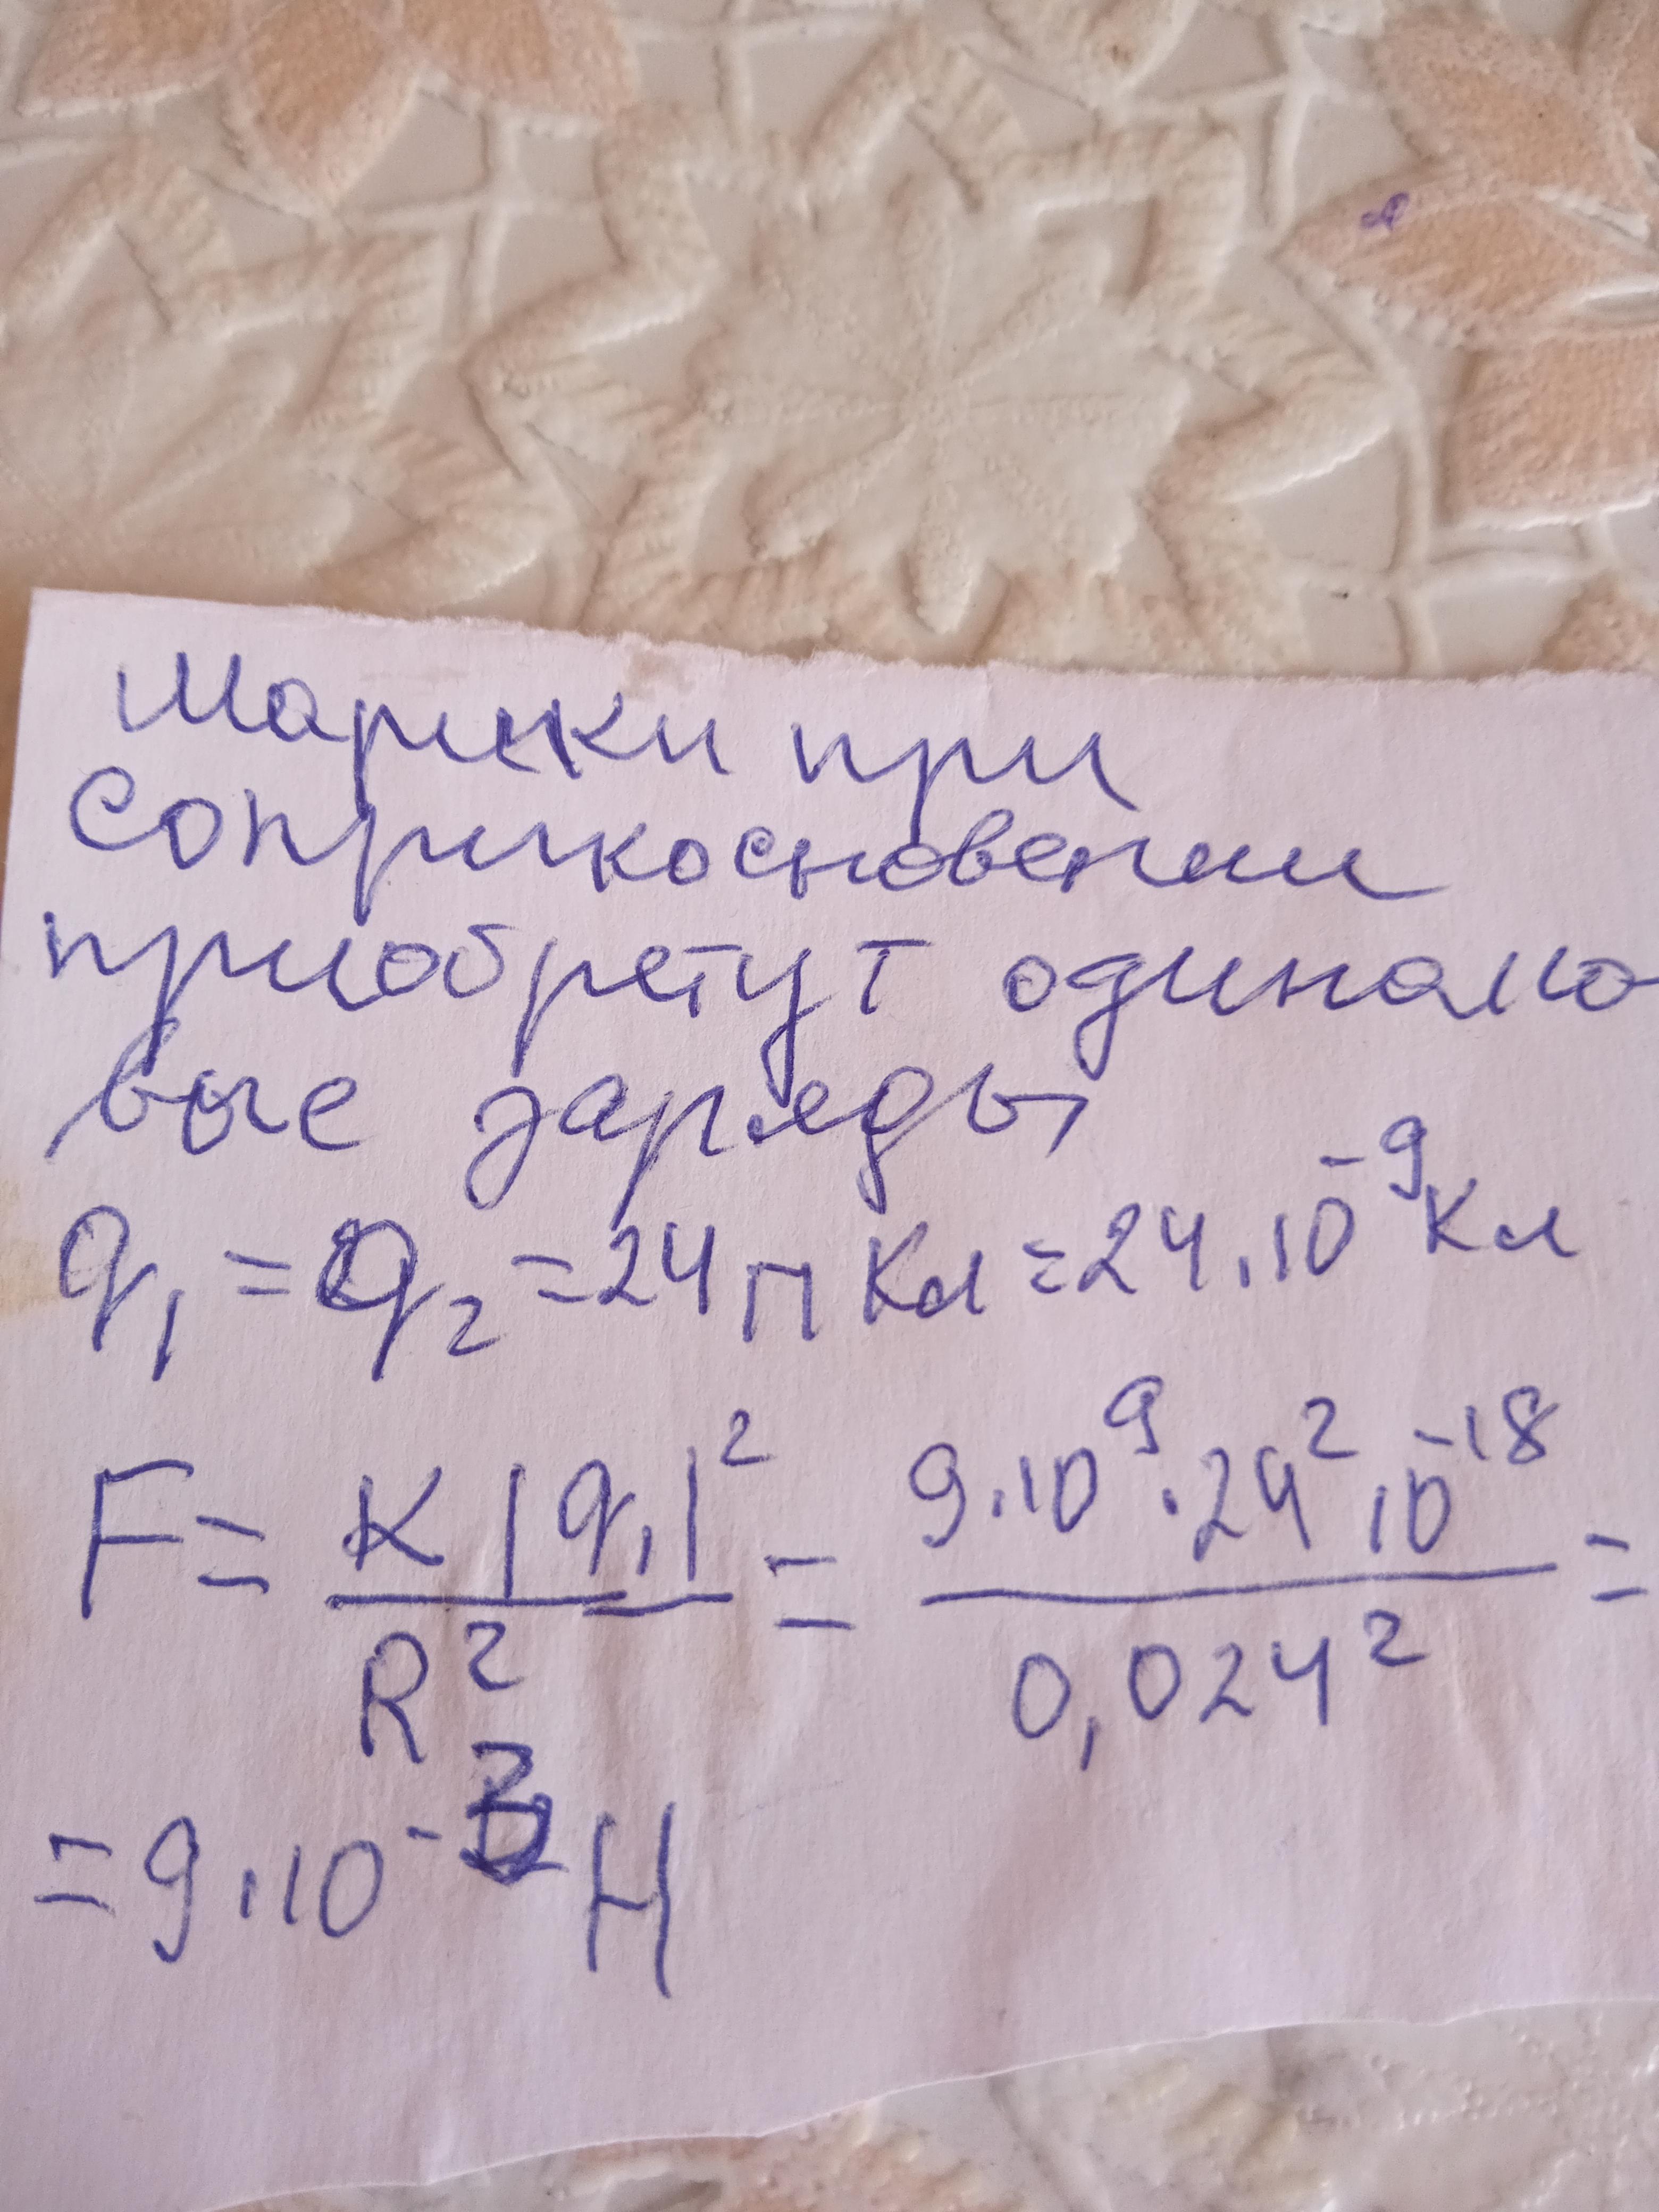 шарики при
соприкосновении
приобретут одинако
вые заряды
q₁ = q₂ = 24 н Кл = 24 . 10⁻⁹ Кл
F = K |q₁|² / R² = 9 . 10⁹ . 24² . 10⁻¹⁸ / 0,024² =
= 9 . 10⁻³ Н